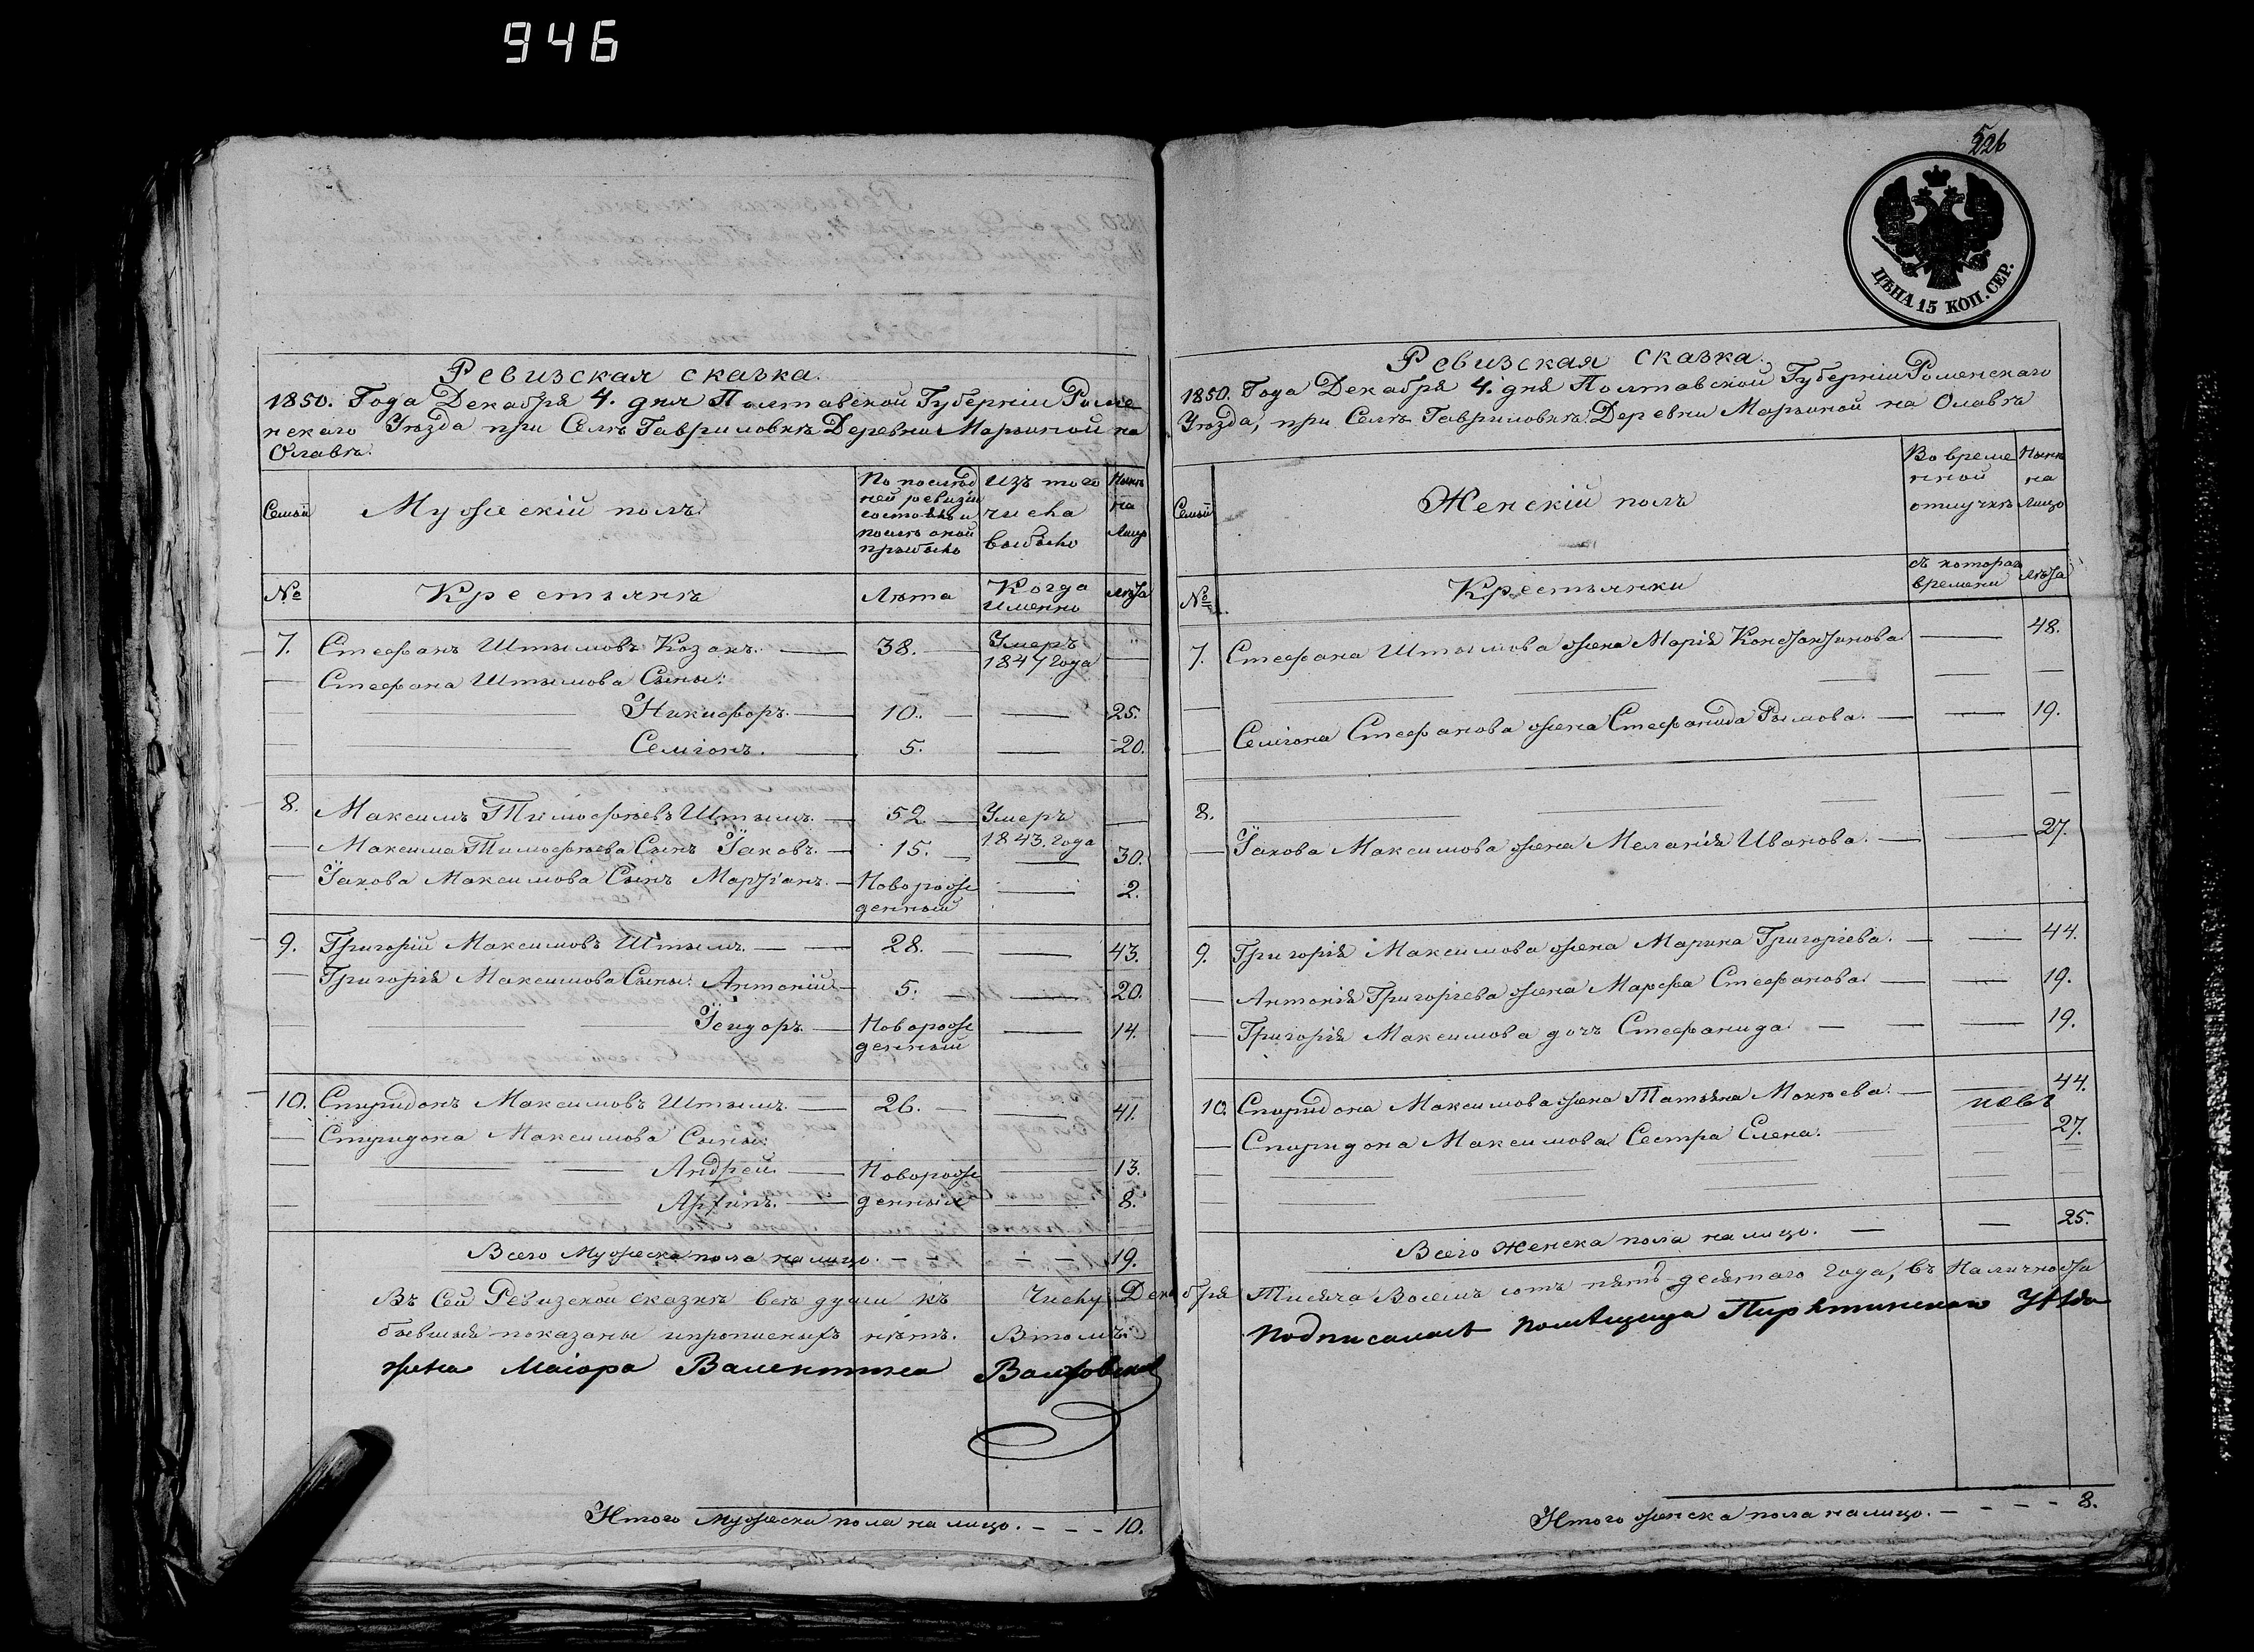 946
Ревизская сказка.
1850. Года Декабря 4. дня Полтавской Губерніи Роме
нскаго Уѣзда при Селѣ Гавриловкѣ Деревни Марьиной на
Олавѣ.
Семьи
Мужескій полъ.
По послѣд
ней ревизіи
состояло и
послѣ оной
прибыло
Изъ того
числа
выбыло
Нынѣ
на
Лицо
№
Крестьянъ
Лѣта
Когда
Именно
Лѣта
7. Стефанъ Штымовъ Козакъ. — 38. — Умеръ "
1847 Года —
Стефана Штымова Сыны:
Никифоръ. — 10. — — 25.
Семіонъ. — 5. — 20.
8. Максимъ Тимофѣевъ Штымъ. — 52. — Умеръ —
1843. Года
Максима Тимофѣева Сынъ Іаковъ. — 15. — — 30.
Іакова Максимова Сынъ Мартіанъ. — Новорож — 2.
денный
9. Григорій Максимовъ Штымъ. — — 28. — — 43.
Григорія Максимова Сыны: Антоній — 5. — — 20.
Ісидоръ. — Новорож — 14.
денный
10. Спиридонъ Максимовъ Штымъ. — 26. — — 41.
Спиридона Максимова Сыны:
Андрей. — Новорож — 13.
— денныя — 8.
Всего Мужеска пола на лицо. — — — — 19.
Въ Сей Ревизской сказкѣ всѣ души къ Числу Дека
бывшія показаны и прописныхъ нѣтъ. Втомъ
жена Маіора Валентина
Итого мужеска пола на лицо. — — — 10.
526
ЦѢНА 15 КОП. СЕР.
Ревизская сказка.
1850. Года Декабря 4. дня Полтавской Губерніи Роменскаго
Уѣзда, при Селѣ Гавриловкѣ Деревни Марьиной на Олавѣ
Семьи
Женскій полъ
Во време
нной
отлучкѣ
Нынѣ
на
Лицо
№
Крестьянки
съ котораго
времени
Лѣта
7. Стефана Штымова жена Марія Константинова. — 48.
Семіона Стефанова жена Стефанида Рымова. — — 19.
8.
Іакова Максимова жена Меланія Иванова. — — 27.
9. Григорія Максимова жена Марина Григоріева. — — 44.
Антонія Григоріева жена Марфа Стефанова. — — 19.
Григорія Максимова дочь Стефанида. — — — 19.
10. Спиридона Максимова жена Татьяна Мокѣева. — — 44.
Спиридона Максимова Сестра Елена. 27.
Всего Женска пола на лицо. — — 25.
бря Тисяча Восемь сотъ пять-десятаго Года, въ Наличности
подписалась помѣщица Пирятинскаго Уѣзда
Итого женска пола на лицо. — — — — 8.